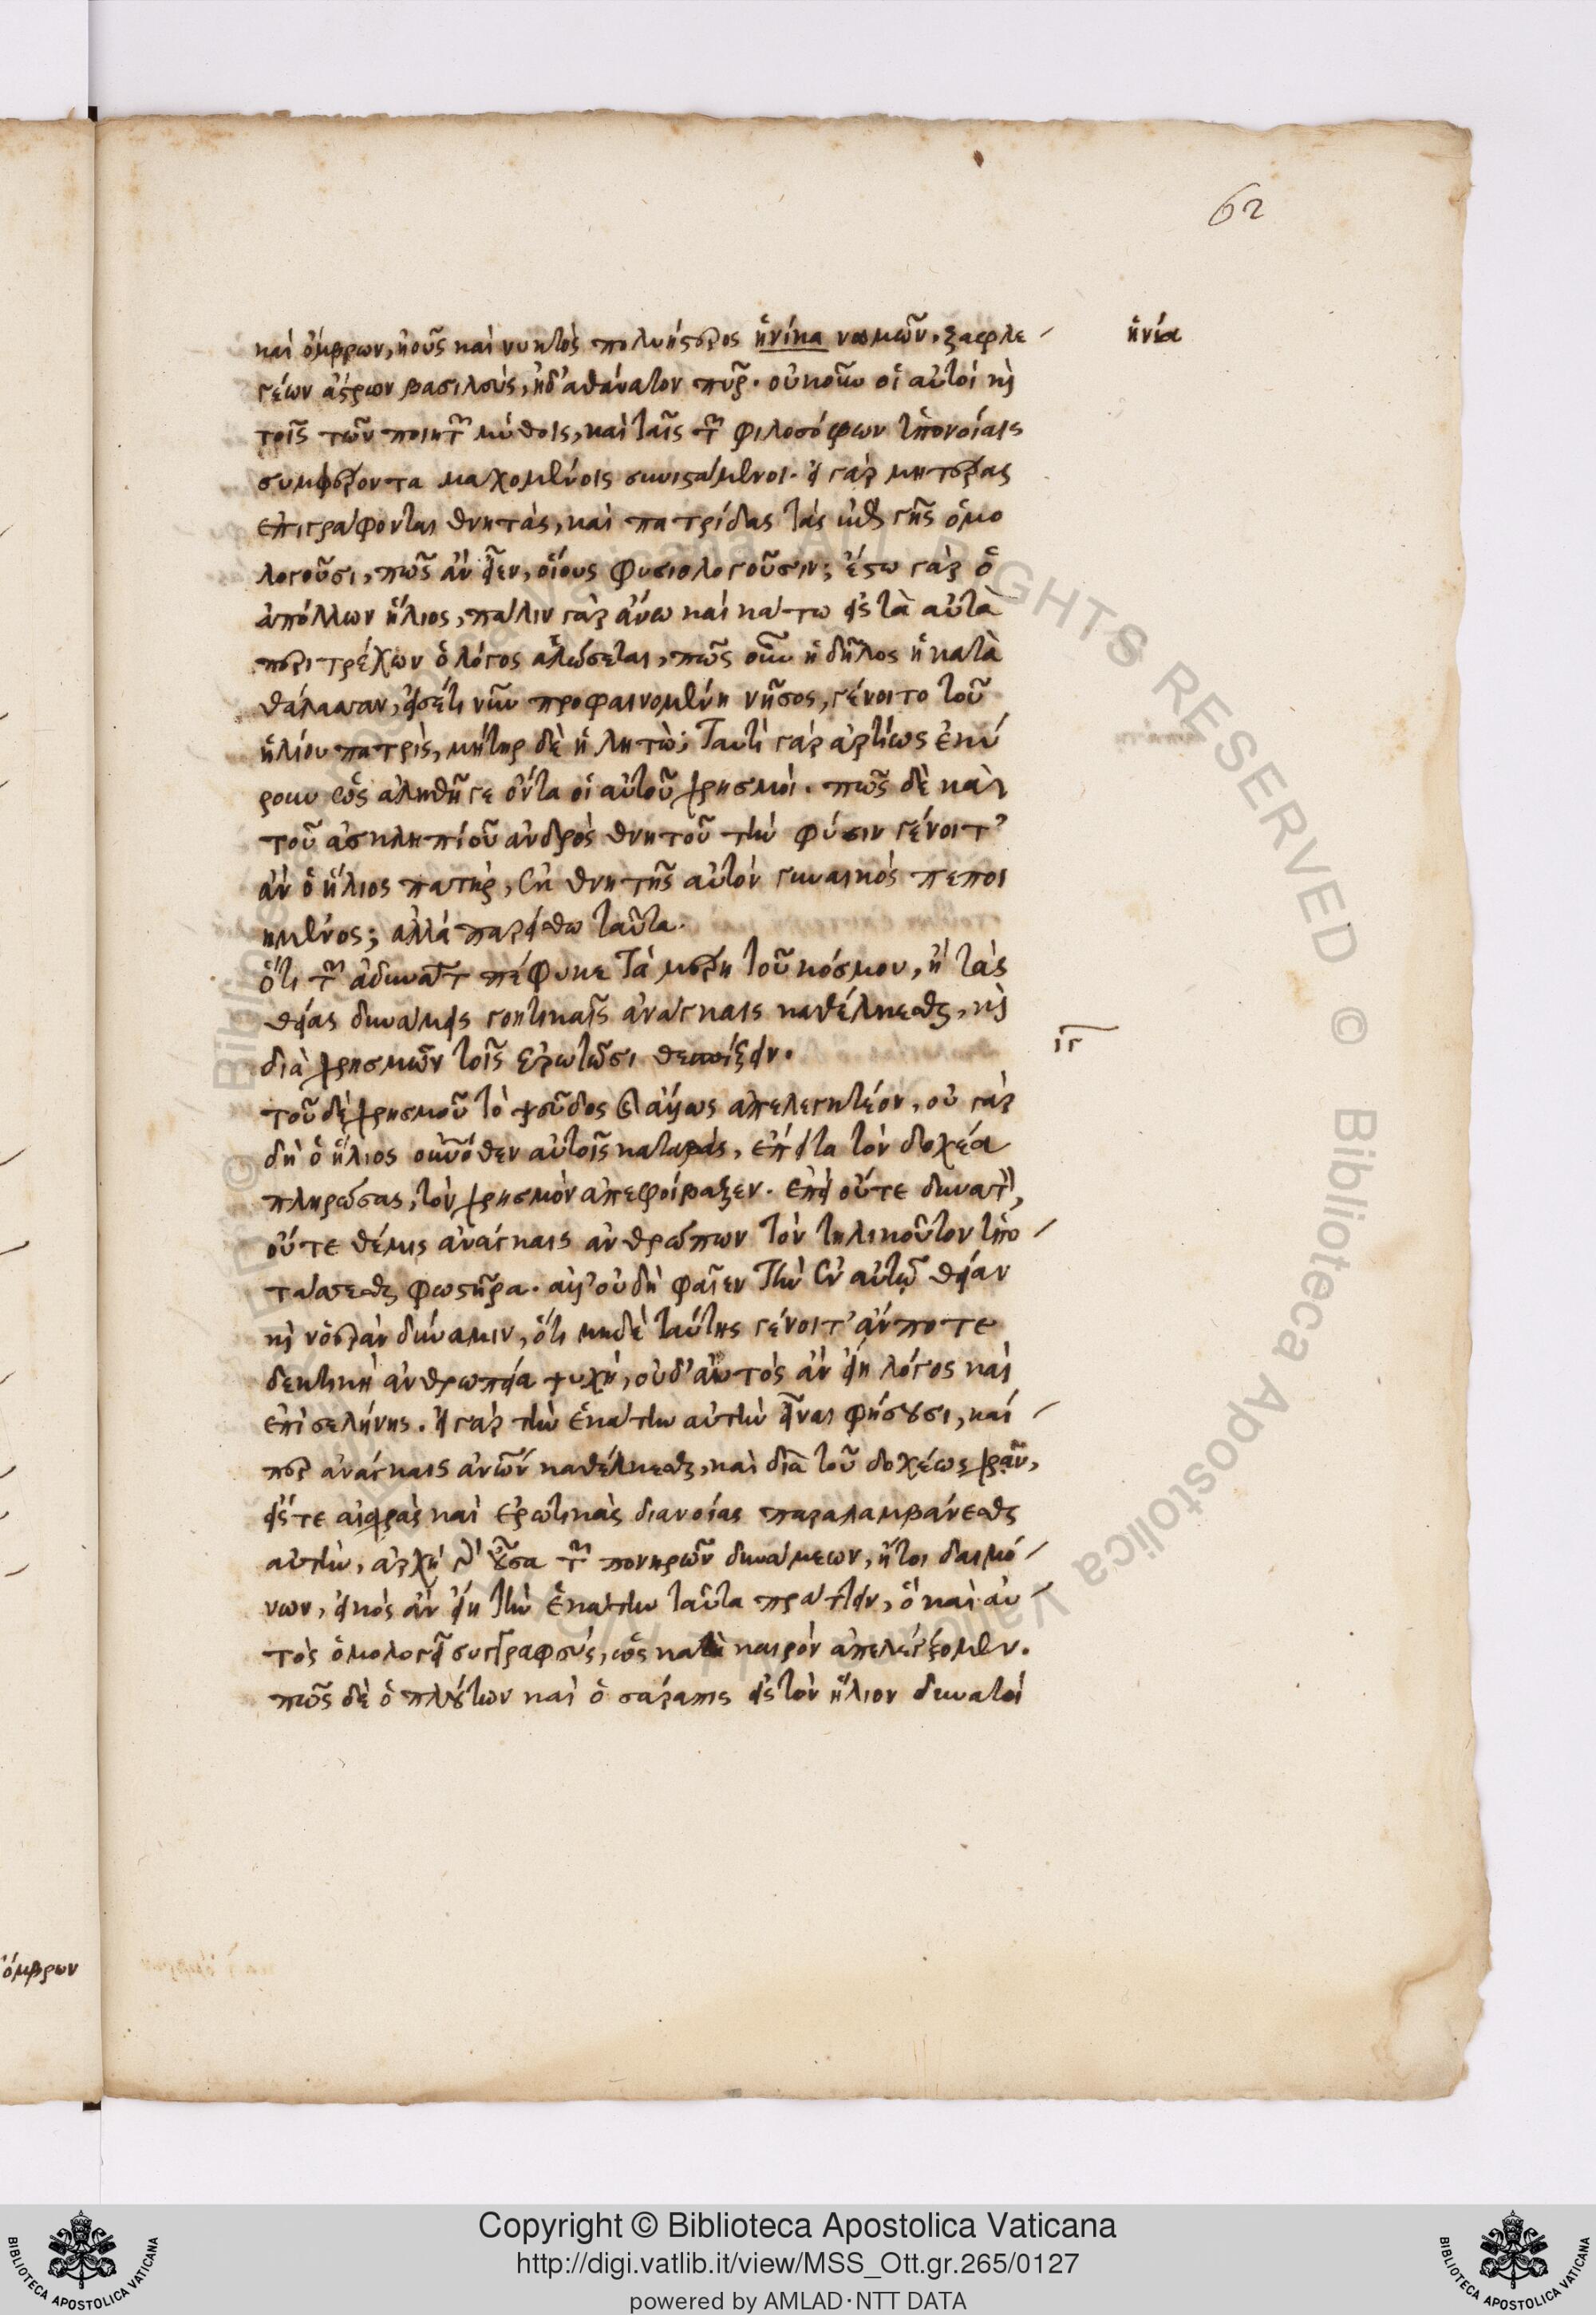 62
καὶ ὄμβρων, ἠοῦς καὶ νυκτὸς πολυάστερος ἡνίκα νωμῶν, ζαφλε
ἡνία
γέων ἄστρων βασιλεὺς, ἠδ' ἀθάνατον πῦρ. οὐκοῦν οἱ αὐτοὶ καὶ
τοῖς τῶν ποιητῶν μύθοις, καὶ ταῖς τῶν φιλοσόφων ὑπονοίαις
συμφέροντα μαχομένοις συνιστάμενοι. εἰ γὰρ μητέρας
ἐπιγράφονται θνητὰς, καὶ πατρίδας τὰς ἐπὶ γῆς ὁμο
λογοῦσι, πῶς ἂν εἶεν, οἵους φυσιολογοῦσιν; ἔστω γὰρ ὁ
ἀπόλλων ἥλιος, πάλιν γὰρ ἄνω καὶ κάτω εἰς τὰ αὐτὰ
περιτρέχων ὁ λόγος ἁλώσεται, πῶς οὖν ἡ δῆλος ἡ κατὰ
θάλασσαν, εἰσέτι νῦν προφαινομένη νῆσος, γένοιτο τοῦ
ἡλίου πατρὶς, μήτηρ δὲ ἡ λητώ; ταυτὶ γὰρ ἀρτίως ἐκύ
ρουν ὡς ἀληθῆ γε ὄντα οἱ αὐτοῦ χρησμοί. πῶς δὲ καὶ
τοῦ ἀσκληπιοῦ ἀνδρὸς θνητοῦ τὴν φύσιν γένοιτ'
ἂν ὁ ἥλιος πατὴρ, ἐκ θνητῆς αὐτὸν γυναικὸς πεποι
ημένος; ἀλλὰ παρείσθω ταῦτα.
ὅτι τῶν ἀδυνάτων πέφυκε τὰ μέρη τοῦ κόσμου, ἢ τὰς
θείας δυνάμεις γοητικαῖς ἀνάγκαις καθέλκεσθαι, καὶ
διὰ χρησμῶν τοῖς ἐρωτῶσι θεσπίζειν.
ιγ
τοῦδε χρησμοῦ τὸ ψεῦδος καὶ ἄλλως ἀπελεγκτέον, οὐ γὰρ
δὴ ὁ ἥλιος οὐρανόθεν αὐτοῖς καταβὰς, ἔπειτα τὸν δοχέα
πληρώσας, τὸν χρησμὸν ἀπεφοίβαξεν. ἐπεὶ οὔτε δυνατὸν,
οὔτε θέμις ἀνάγκαις ἀνθρώπων τὸν τηλικοῦτον ὑπο
τάσσεσθαι φωστῆρα. ἀλλ' οὐδὴ φαῖεν τὴν ἐν αὐτῷ θείαν
καὶ νοερὰν δύναμιν, ὅτι μηδὲ ταύτης γένοιτ' ἄν ποτε
δεκτικὴ ἀνθρωπεία ψυχὴ, οὐδ' αὐτὸς ἂν εἴη λόγος καὶ
ἐπὶ σελήνης. εἰ γὰρ τὴν ἑκάτην αὐτὴν εἶναι φήσουσι, καὶ
πῶς ἀνάγκαις ἀνθρώπων καθέλκεσθαι, καὶ διὰ τοῦ δοχέως χρᾶν,
εἴς τε αἰσχρὰς καὶ ἐρωτικὰς διανοίας παραλαμβάνεσθαι
αὐτὴν, ἀρχὴ δ' οὖσα τῶν πονηρῶν δυνάμεων, ἤτοι δαιμό
νων, εἰκὸς ἂν εἴη τὴν ἑκάτην ταῦτα πράττειν, ὃ καὶ αὐ
τὸς ὁμολογεῖ συγγραφεὺς, ὡς κατὰ καιρὸν ἀπελέγξομεν.
πῶς δὲ ὁ πλούτων καὶ ὁ σάραπις εἰς τὸν ἥλιον δυνατοὶ
ὄμβρων
Copyright © Biblioteca Apostolica Vaticana
http://digi.vatlib.it/view/MSS_Ott.gr.265/0127
powered by AMLAD·NTT DATA